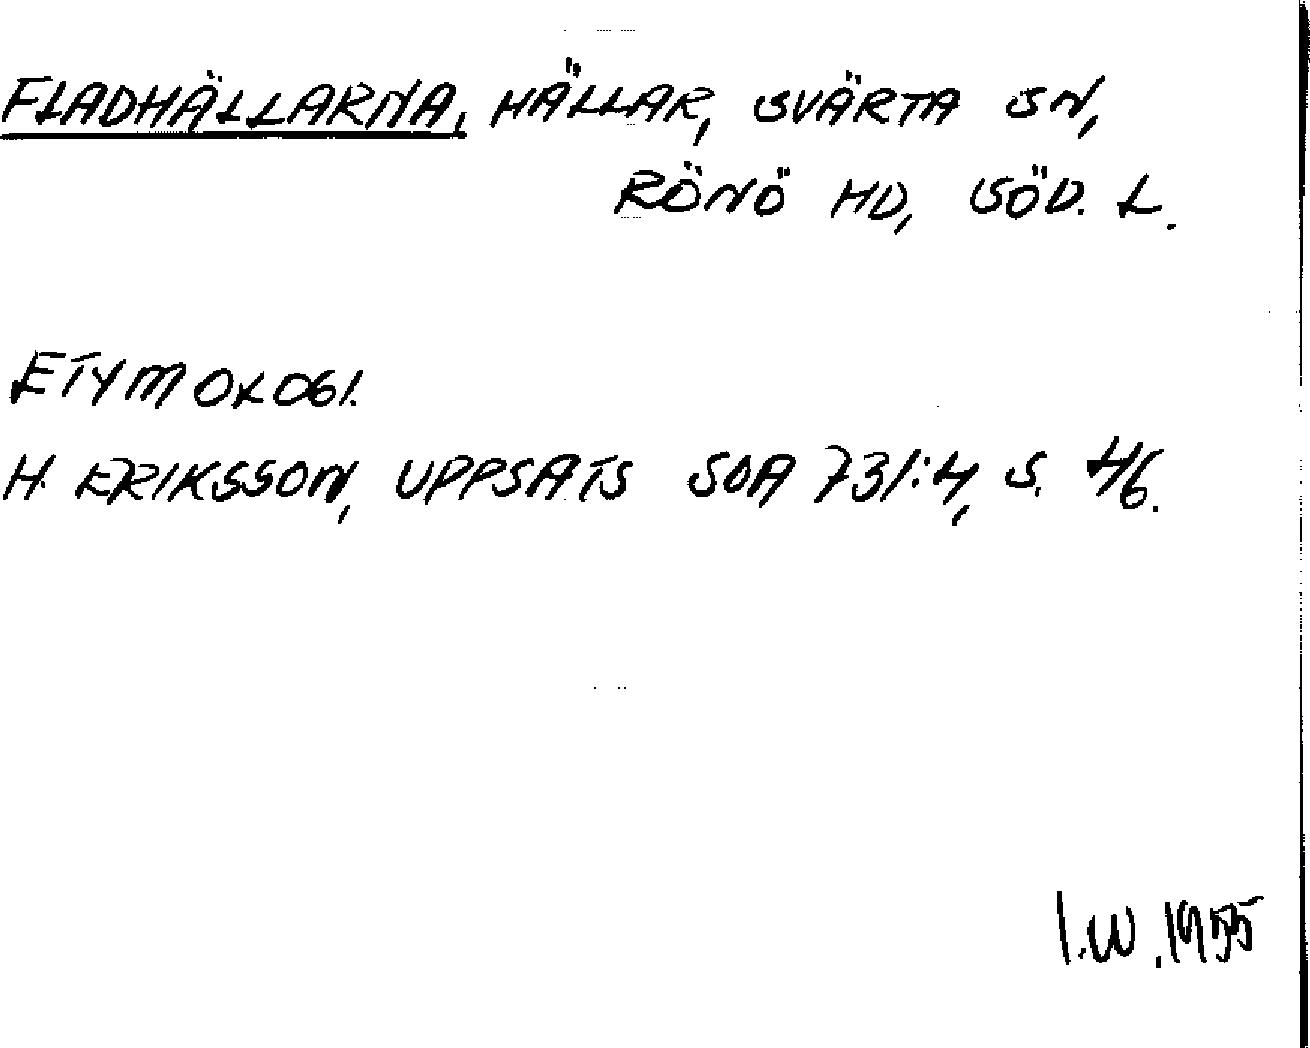 FLADHÄLLARNA, HÄLLAR, SVÄRTA SN,
RÖNÖ HD, SÖD. L.
ETYMOLOGI.
H. ERIKSSON, UPPSATS SOA 731:4, S. 46.
I.W. 1955